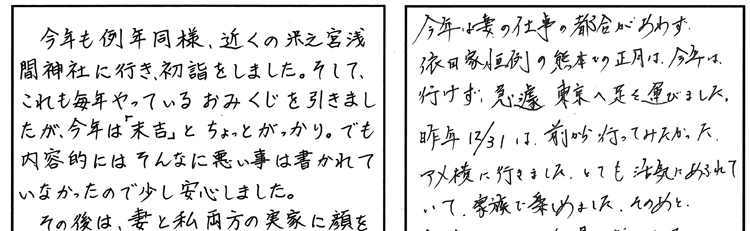 今年も例年同様、近くの米之宮浅
間神社に行き、初詣をしました。そして、
これも毎年やっているおみくじを引きまし
たが、今年は「末吉」とちょっとがっかり。でも
内容的にはそんなに悪い事は書かれて
いなかったので少し安心しました。
その後は、妻と私両方の実家に顔を
今年は妻の仕事の都合があわず、
依田家恒例の熊本での正月は、今年は
行けず、急遽東京へ足を運びました。
昨年12/31は、前から行ってみたかった、
アメ横に行きました。とても活気にあふれて
いて、家族で楽しめました。そのあと、